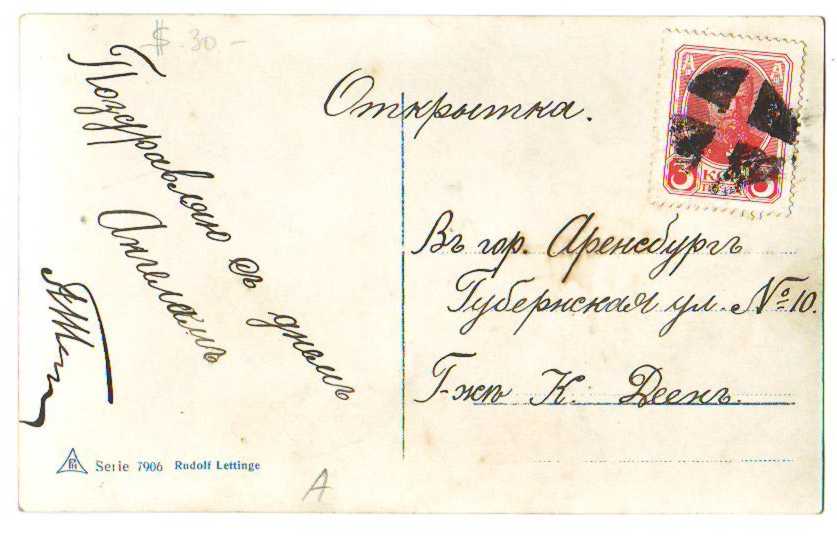 $ 30 -
Поздравляю съ днемъ
Ангеламъ
Открытка.
3 КОП 3
Въ гор. Аренсбургъ
Губернская ул. № 10.
Г-жѣ К. Деенъ.
Serie 7906 Rudolf Lettinge
A